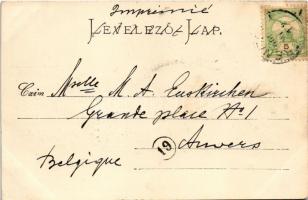 Imprimé
LEVELEZŐ LAP.
Czim Mselle M. A. Euskirchen
Grande place No 1
Anvers
Belgique
19
5